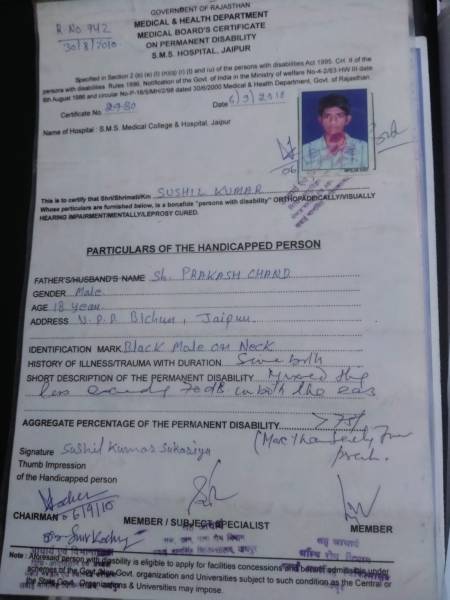 GOVERNMENT OF RAJASTHAN
MEDICAL & HEALTH DEPARTMENT
MEDICAL BOARD'S CERTIFICATE
ON PERMANENT DISABILITY
S.M.S. HOSPITAL, JAIPUR
R.No. 942
30/8/2010
Specified in Section 2 (b) (e) (l) (n)(q) (r) (t) and (u) of the persons with disabilities Act 1995. CH. II of the
persons with disabilities. Rules 1996. Notification of the Govt. of India in the Ministry of welfare No-4-2/83-HW III-date
6th August 1986 and circular No-P-16/5/MH/2/98 dated 30/6/2000 Medical & Health Department, Govt. of Rajasthan.
Certificate No. 2780 Date 6/9/2010
Name of Hospital : S.M.S. Medical College & Hospital, Jaipur
This is to certify that Shri/Shrimati/Km SUSHIL KUMAR
Whose particulars are furnished below, is a bonafide "persons with disability" ORTHOPAEDICALLY/VISUALLY
HEARING IMPAIRMENT/MENTALLY/LEPROSY CURED.
PARTICULARS OF THE HANDICAPPED PERSON
FATHER'S/HUSBAND'S NAME Sh. PRAKASH CHAND
GENDER Male
AGE 18 year
ADDRESS V.P.P. Bichun, Jaipur
IDENTIFICATION MARK Black Mole on Neck
HISTORY OF ILLNESS/TRAUMA WITH DURATION Since birth
SHORT DESCRIPTION OF THE PERMANENT DISABILITY Mixed
loss exceeding 70 dB in both the ears
AGGREGATE PERCENTAGE OF THE PERMANENT DISABILITY > 75%
(More than Seventy five
Signature Sushil Kumar Sukariya
Thumb Impression
of the Handicapped person
06/9/10
CHAIRMAN
MEMBER / SUBJECT SPECIALIST
MEMBER
Note : Aforesaid person with disability is eligible to apply for facilities concessions and benefits admissible under
schemes of the Govt./Non Govt. organization and Universities subject to such condition as the Central or
the State Govt. Organization & Universities may impose.